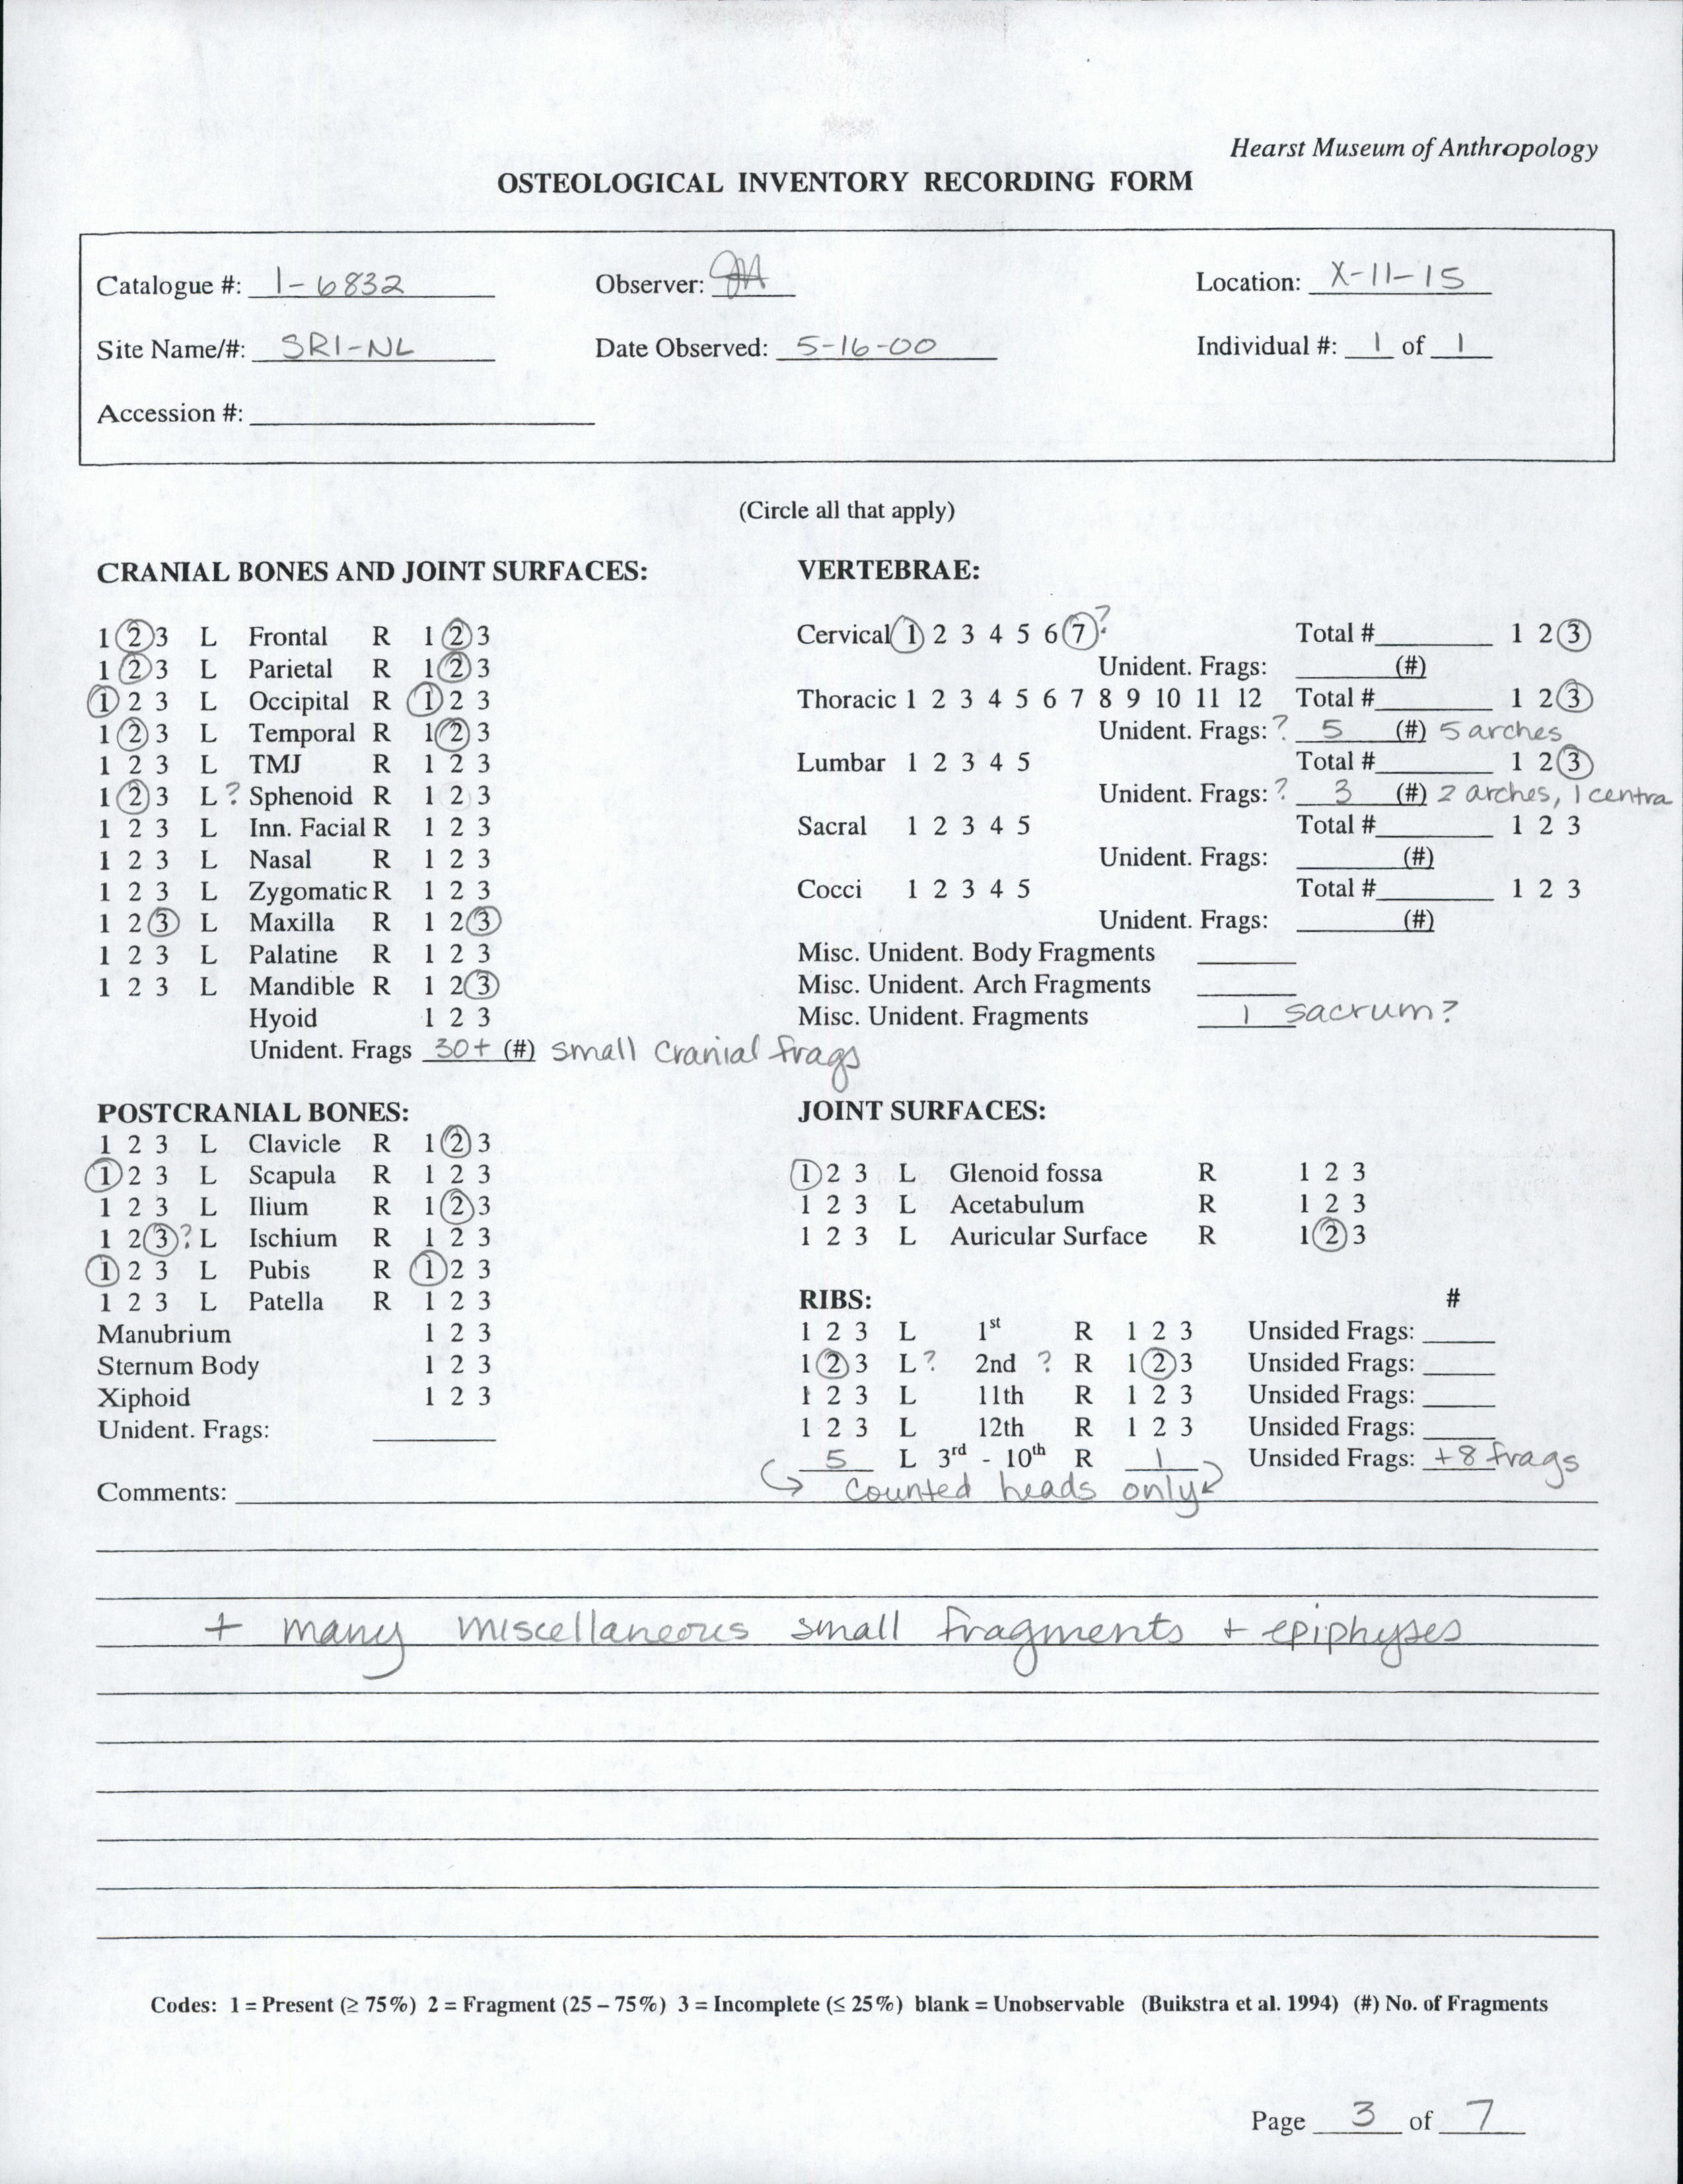 Hearst Museum of Anthropology
OSTEOLOGICAL INVENTORY RECORDING FORM
Catalogue #: 1-6832 Observer: Location: X-11-15
Site Name/#: SRI-NL Date Observed: 5-16-00 Individual #: 1 of 1
Accession #:
(Circle all that apply)
CRANIAL BONES AND JOINT SURFACES:
1 2 3 L Frontal R 1 2 3
1 2 3 L Parietal R 1 2 3
1 2 3 L Occipital R 1 2 3
1 2 3 L Temporal R 1 2 3
1 2 3 L TMJ R 1 2 3
1 2 3 L ? Sphenoid R 1 2 3
1 2 3 L Inn. Facial R 1 2 3
1 2 3 L Nasal R 1 2 3
1 2 3 L Zygomatic R 1 2 3
1 2 3 L Maxilla R 1 2 3
1 2 3 L Palatine R 1 2 3
1 2 3 L Mandible R 1 2 3
Hyoid 1 2 3
Unident. Frags 30+ (#) small cranial frags
VERTEBRAE:
Cervical 1 2 3 4 5 6 7 ? Total # 1 2 3
Unident. Frags: (#)
Thoracic 1 2 3 4 5 6 7 8 9 10 11 12 Total # 1 2 3
Unident. Frags: ? 5 (#) 5 arches
Lumbar 1 2 3 4 5 Total # 1 2 3
Unident. Frags: ? 3 (#) 2 arches, 1 centra
Sacral 1 2 3 4 5 Total # 1 2 3
Unident. Frags: (#)
Cocci 1 2 3 4 5 Total # 1 2 3
Unident. Frags: (#)
Misc. Unident. Body Fragments
Misc. Unident. Arch Fragments
Misc. Unident. Fragments 1 sacrum?
POSTCRANIAL BONES:
1 2 3 L Clavicle R 1 2 3
1 2 3 L Scapula R 1 2 3
1 2 3 L Ilium R 1 2 3
1 2 3 ? L Ischium R 1 2 3
1 2 3 L Pubis R 1 2 3
1 2 3 L Patella R 1 2 3
Manubrium 1 2 3
Sternum Body 1 2 3
Xiphoid 1 2 3
Unident. Frags:
JOINT SURFACES:
1 2 3 L Glenoid fossa R 1 2 3
1 2 3 L Acetabulum R 1 2 3
1 2 3 L Auricular Surface R 1 2 3
RIBS: #
1 2 3 L 1st R 1 2 3 Unsided Frags:
1 2 3 L ? 2nd ? R 1 2 3 Unsided Frags:
1 2 3 L 11th R 1 2 3 Unsided Frags:
1 2 3 L 12th R 1 2 3 Unsided Frags:
5 L 3rd - 10th R 1 Unsided Frags: +8 frags
Comments: counted heads only
+ many miscellaneous small fragments + epiphyses
Codes: 1 = Present (≥ 75%) 2 = Fragment (25 – 75%) 3 = Incomplete (≤ 25%) blank = Unobservable (Buikstra et al. 1994) (#) No. of Fragments
Page 3 of 7